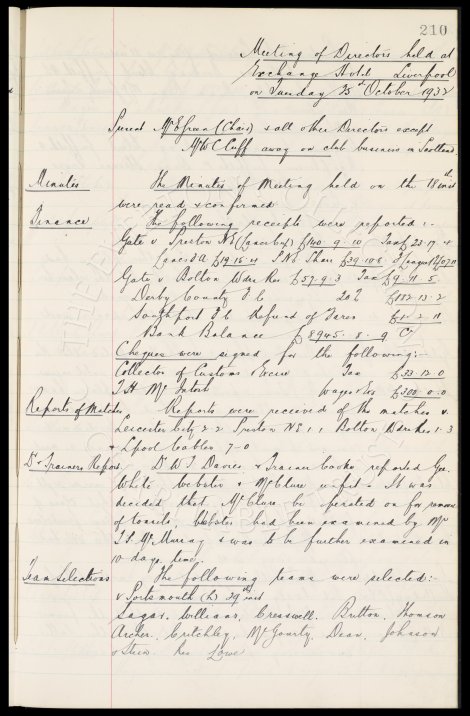 210
Meeting of Directors held at
Exchange Hotel Liverpool
on Tuesday 25th October 1932
Present Mr E Green (Chair) & all other Directors except
Mr W C Cuff away on club business in Scotland.
Minutes The Minutes of Meeting held on the 18th inst
were read & confirmed
Finance The following receipts were reported :-
Gate v Preston N E (Lancs Cup) £140 9 10 Tax £23 17 4
Lancs F A £19.16.11 P N E Share £39.10.8
Gate v Bolton Wdrs Res £59.9.3 Tax £9.11.5
Derby County F C £182.13.2
Southport F C Refund of Fares £1 2 11
Bank Balance £8945. 8. 9 Cr
Cheques were signed for the following:-
Collector of Customs & Excise Tax £33.12.0
T. H. McIntosh Wages & Exs £300.0.0
Reports of Matches Reports were received of the matches v.
Leicester City 2 2 Preston N E 1 1 Bolton Wdrs Res 1-3
& Lpool Cables 7-0
Dr & Trainers Report. Dr W J Davies & Trainer Cooke reported Geo.
White Webster & McClure unfit & It was
decided that McClure be operated on for removal
of tonsils. Webster had been examined by Mr
McMurray & was to be further examined in
10 days time.
Team Selections The following teams were selected:-
v Portsmouth (h) 29th inst
Sagar, Williams, Cresswell. Britton, Thomson
Archer, Critchley, McGourty, Dean, Johnson
& Stein. Res Lowe